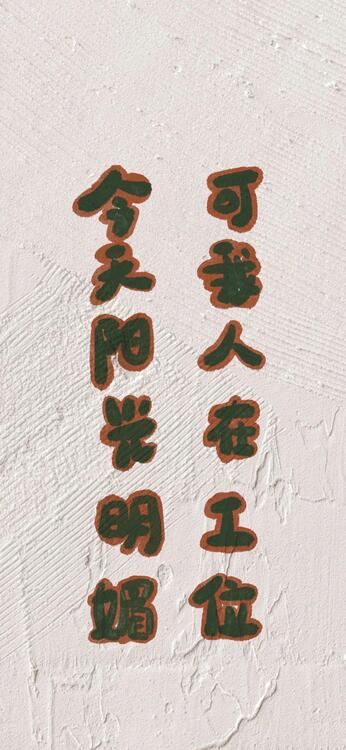 今天阳光明媚
可我人在工位